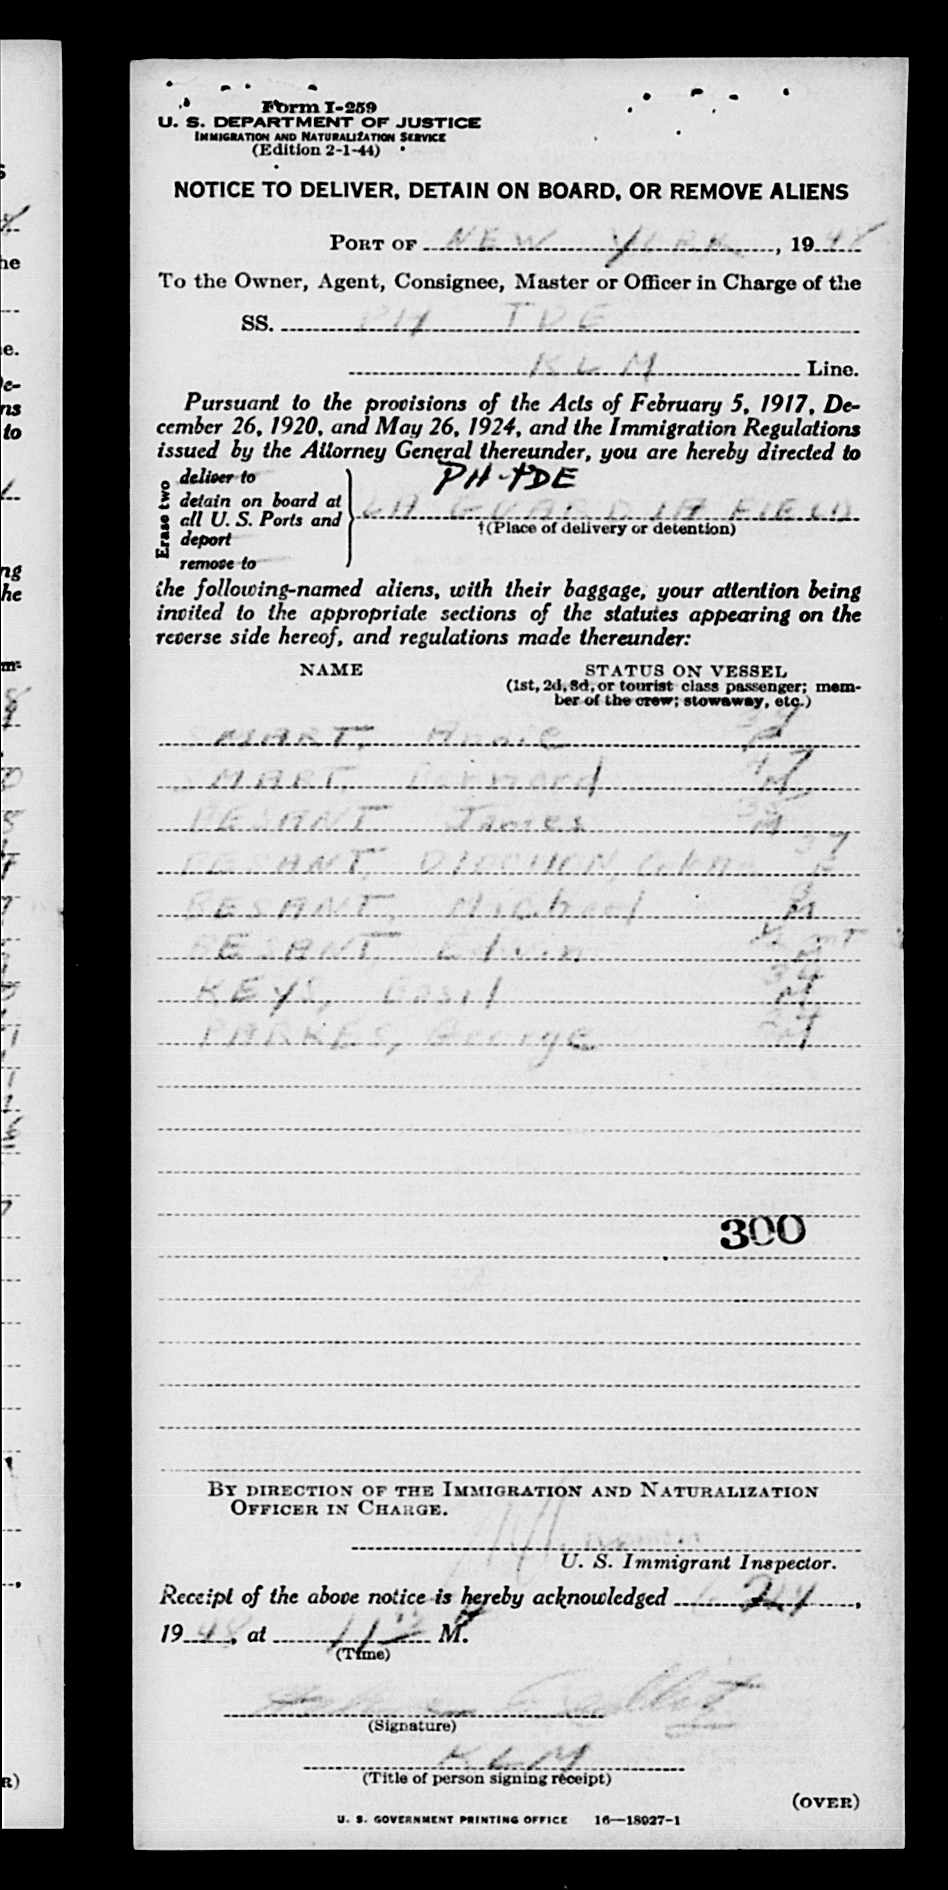 Form I-259
U. S. DEPARTMENT OF JUSTICE
IMMIGRATION AND NATURALIZATION SERVICE
(Edition 2-1-44)
NOTICE TO DELIVER, DETAIN ON BOARD, OR REMOVE ALIENS
PORT OF NEW YORK, 1948
To the Owner, Agent, Consignee, Master or Officer in Charge of the
SS. PH TDE
KLM Line.
Pursuant to the provisions of the Acts of February 5, 1917, De-
cember 26, 1920, and May 26, 1924, and the Immigration Regulations
issued by the Attorney General thereunder, you are hereby directed to
PH-TDE
Erase two
deliver to
detain on board at
all U. S. Ports and
deport
remove to
LA GUARDIA FIELD
†(Place of delivery or detention)
the following-named aliens, with their baggage, your attention being
invited to the appropriate sections of the statutes appearing on the
reverse side hereof, and regulations made thereunder:
NAME STATUS ON VESSEL
(1st, 2d, 3d, or tourist class passenger; mem-
ber of the crew; stowaway, etc.)
SMART, Annie
SMART, Bernard 47 M
BESANT James M
BESANT, 37 F
BESANT, Michael M
BESANT, Edwin M
KEYS, Basil 34 M
PARKES, George M
300
BY DIRECTION OF THE IMMIGRATION AND NATURALIZATION
OFFICER IN CHARGE.
U. S. Immigrant Inspector.
Receipt of the above notice is hereby acknowledged
1948, at M.
(Time)
(Signature)
KLM
(Title of person signing receipt)
(OVER)
U. S. GOVERNMENT PRINTING OFFICE 16—18027-1